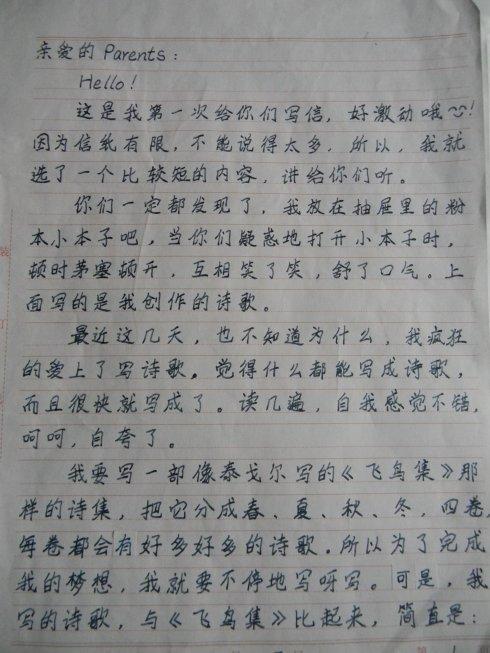 亲爱的 Parents：
Hello！
这是我第一次给你们写信，好激动哦！
因为信纸有限，不能说得太多，所以，我就
选了一个比较短的内容，讲给你们听。
你们一定都发现了，我放在抽屉里的粉
本小本子吧，当你们疑惑地打开小本子时，
顿时茅塞顿开，互相笑了笑，舒了口气。上
面写的是我创作的诗歌。
最近这几天，也不知道为什么，我疯狂
的爱上了写诗歌。觉得什么都能写成诗歌，
而且很快就写成了。读几遍，自我感觉不错，
呵呵，自夸了。
我要写一部像泰戈尔写的《飞鸟集》那
样的诗集，把它分成春、夏、秋、冬，四卷，
每卷都会有好多好多的诗歌。所以为了完成
我的梦想，我就要不停地写呀写。可是，我
写的诗歌，与《飞鸟集》比起来，简直是：
装